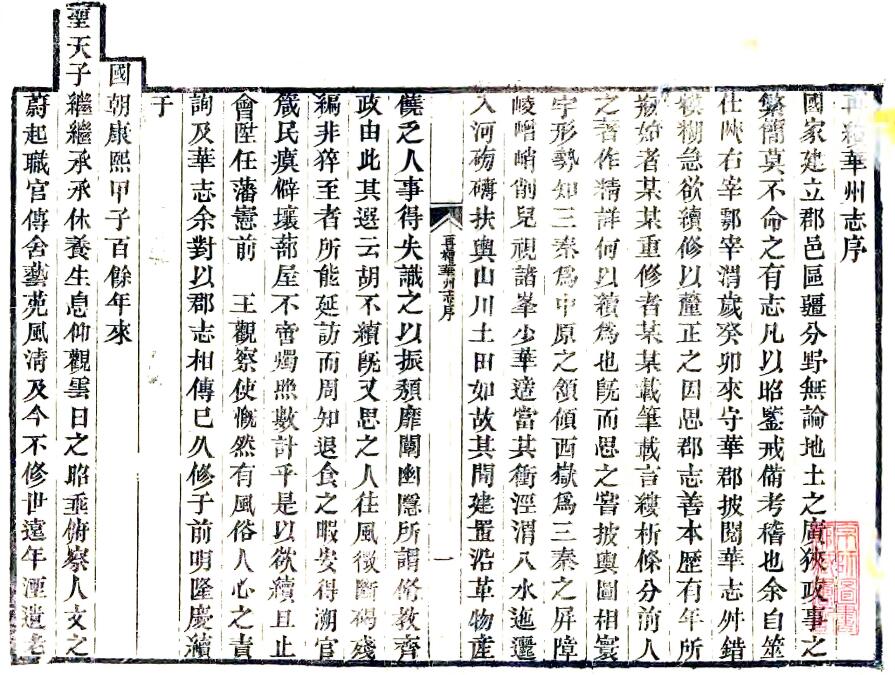 再續華州志序
國家建立郡邑區疆分野無論地土之廣狹政事之
繁簡莫不命之有志凡以昭鑒戒備考稽也余自筮
仕陝右宰鄠宰渭歲癸卯來守華郡披閱華志舛錯
模糊急欲續修以釐正之因思郡志善本歷有年所
剏始者某某重修者某某載筆載言縷析條分前人
之著作精詳何以續爲也旣而思之嘗披輿圖相寰
宇形勢如三秦爲中原之領傾西嶽爲三秦之屏障
崚嶒峭削兒視諸峯少華適當其衝涇渭八水迤邐
入河磅礴扶輿山川土田如故其間建置沿革物產
再續華州志序
一
饒乏人事得失識之以振頹靡闡幽隱所謂脩教齊
政由此其選云胡不續旣又思之人往風微斷碣殘
編非猝至者所能延訪而周知退食之暇安得溯官
箴民瘼僻壤蔀屋不啻燭照數計乎是以欲續且止
會陞任藩憲前 王觀察使慨然有風俗人心之責
詢及華志余對以郡志相傳已久修于前明隆慶續
于
國朝康熙甲子百餘年來
聖天子繼繼承承休養生息仰觀雲日之昭垂俯察人文之
蔚起職官傳舍藝苑風清及今不修世遠年湮遺老
京師圖書